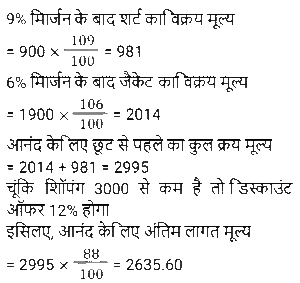 9% मार्जिन के बाद शर्ट का विक्रय मूल्य
= 900 × 109/100 = 981
6% मार्जिन के बाद जैकेट का विक्रय मूल्य
= 1900 × 106/100 = 2014
आनंद के लिए छूट से पहले का कुल क्रय मूल्य
= 2014 + 981 = 2995
चूंकि शॉपिंग 3000 से कम है तो डिस्काउंट
ऑफर 12% होगा
इसलिए, आनंद के लिए अंतिम लागत मूल्य
= 2995 × 88/100 = 2635.60